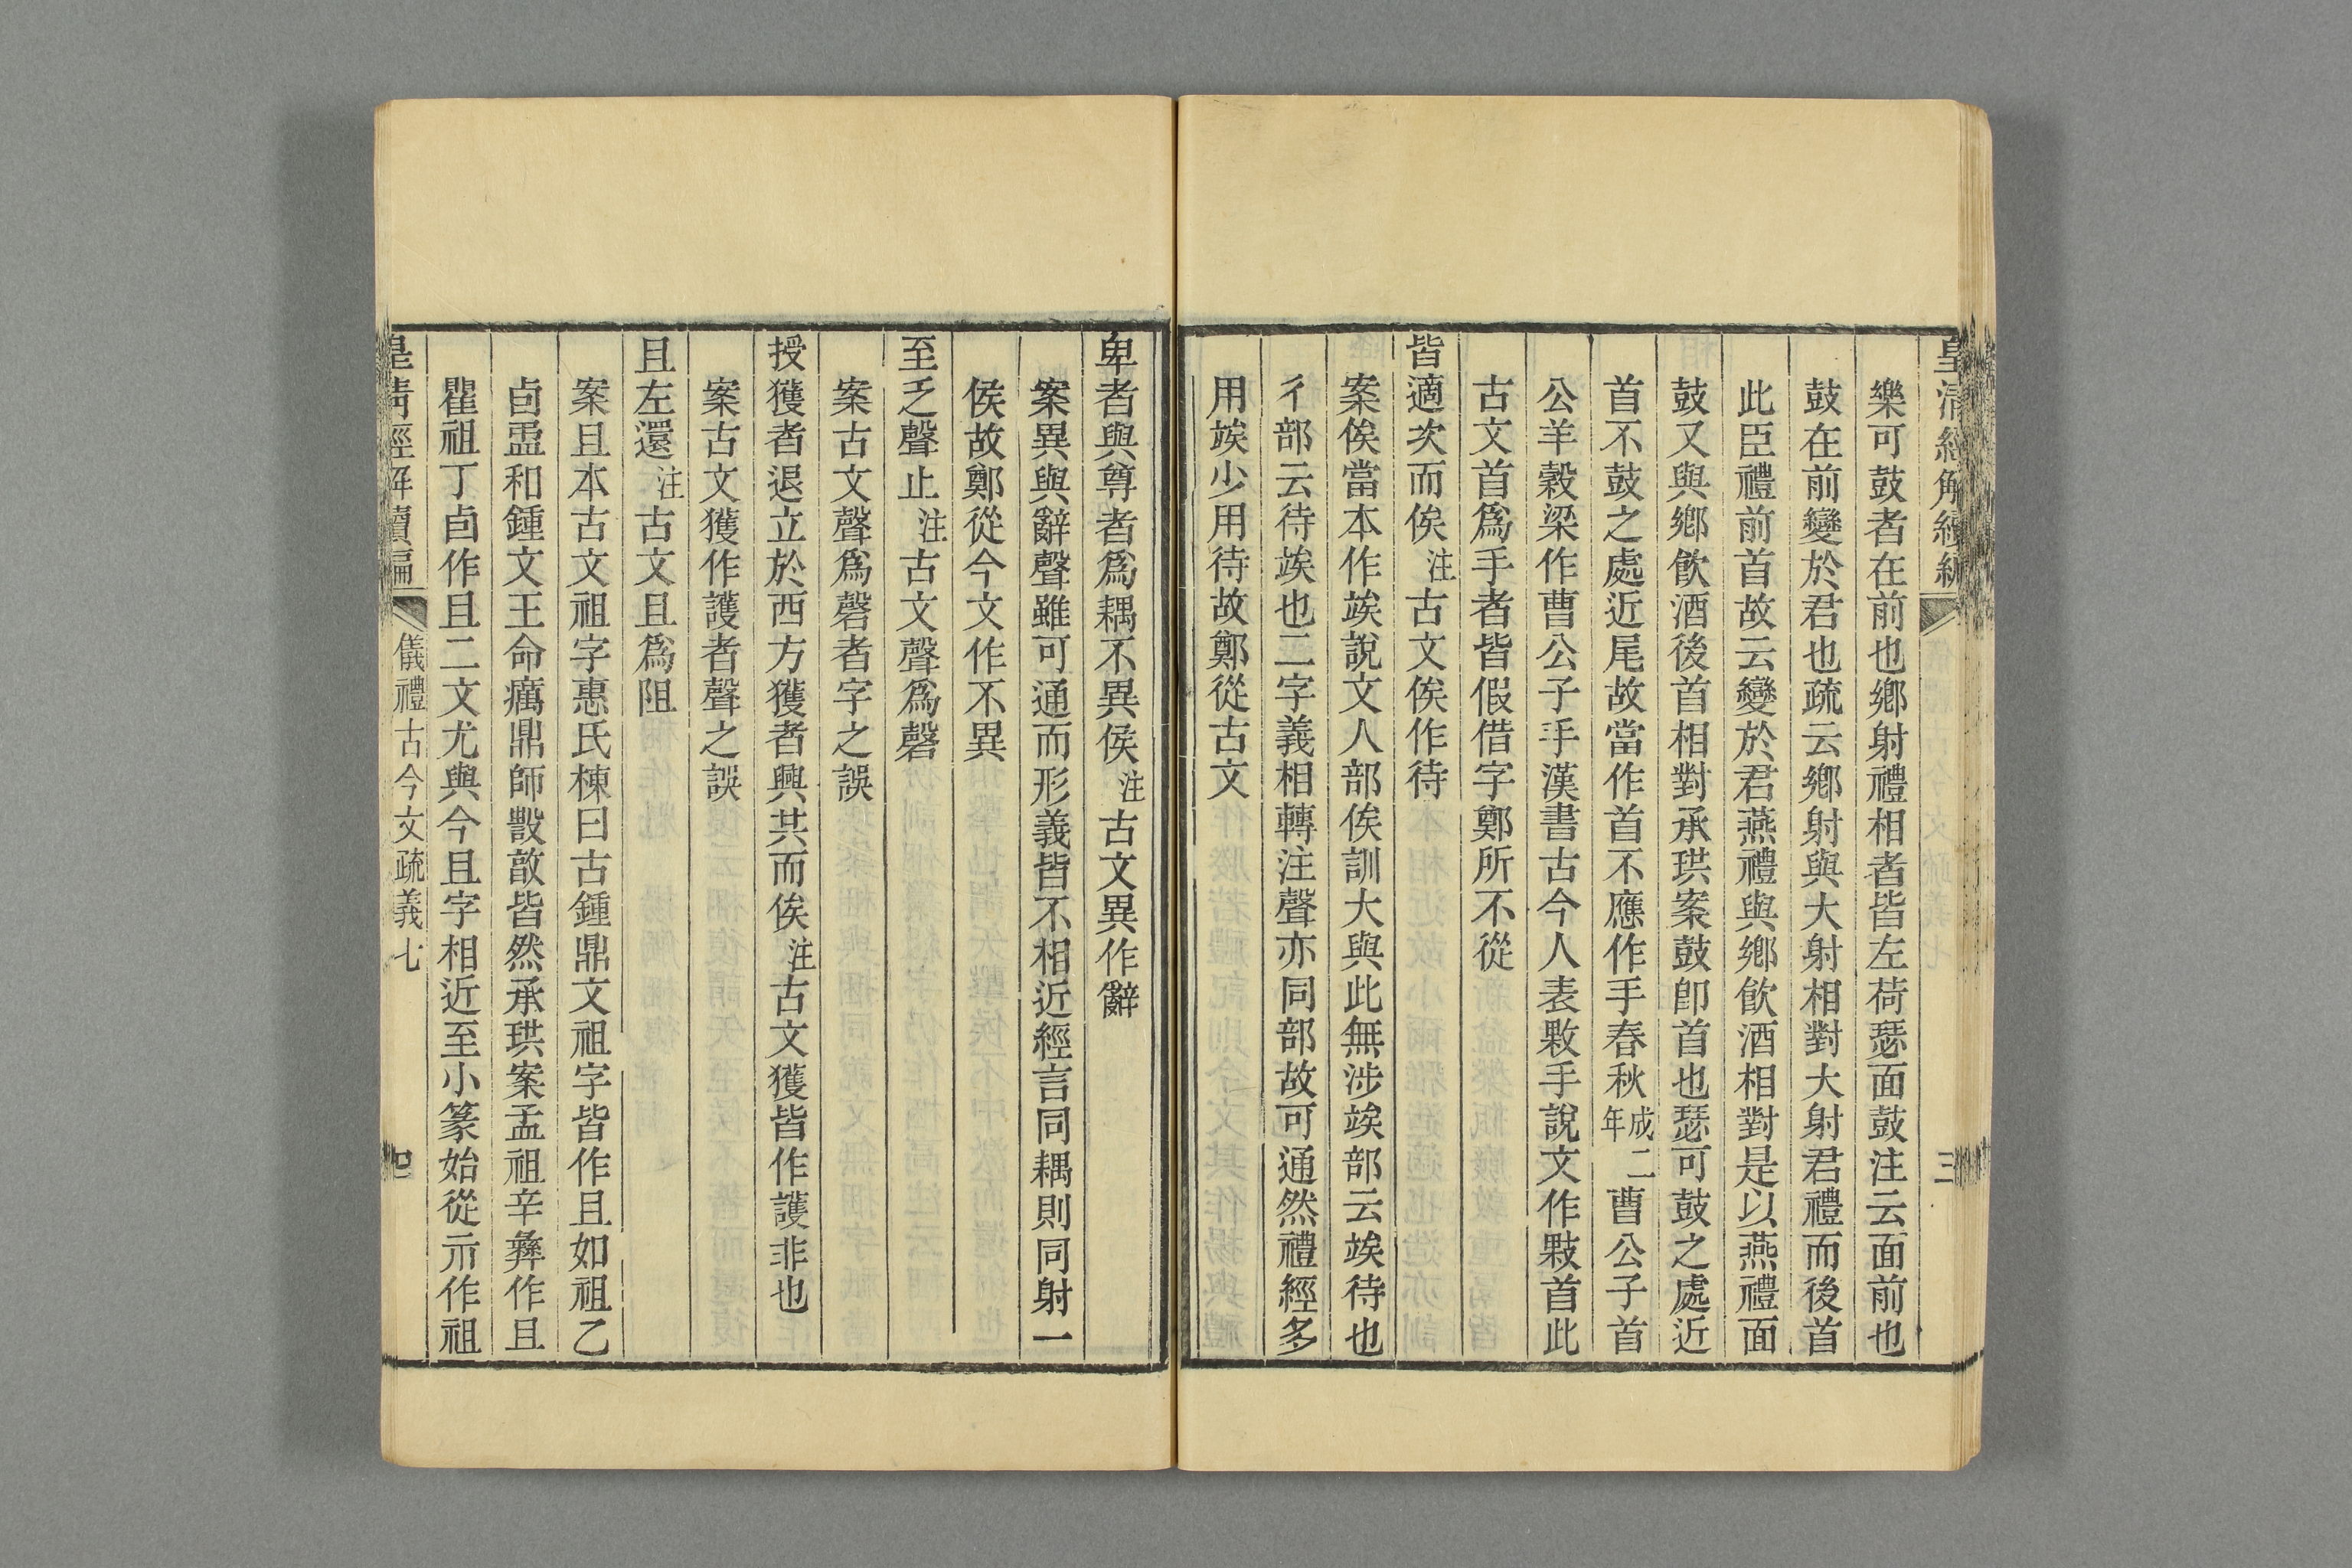 皇清經解續編
三
樂可鼓者在前也鄉射禮相者皆左荷瑟面鼓注云面前也
鼓在前變於君也疏云鄉射與大射相對大射君禮而後首
此臣禮前首故云變於君燕禮與鄉飮酒相對是以燕禮面
鼓又與鄉飮酒後首相對承珙案鼓卽首也瑟可鼓之處近
首不鼓之處近尾故當作首不應作手春秋成二年曹公子首
公羊穀梁作曹公子手漢書古今人表敤手說文作敤首此
古文首爲手者皆假借字鄭所不從
皆適次而俟注古文俟作待
案俟當本作竢說文人部俟訓大與此無涉竢部云竢待也
彳部云待竢也二字義相轉注聲亦同部故可通然禮經多
用竢少用待故鄭從古文
卑者與尊者爲耦不異侯注古文異作辭
案異與辭聲雖可通而形義皆不相近經言同耦則同射一
侯故鄭從今文作不異
至乏聲止注古文聲爲磬
案古文聲爲磬者字之誤
授獲者退立於西方獲者興共而俟注古文獲皆作護非也
案古文獲作護者聲之誤
且左還注古文且爲阻
案且本古文祖字惠氏棟曰古鍾鼎文祖字皆作且如祖乙
卣盉和鍾文王命癘鼎師㲃敵皆然承珙案孟祖辛彝作且
瞿祖丁卣作且二文尤與今且字相近至小篆始從示作祖
皇清經解續編
儀禮古今文疏義七
四